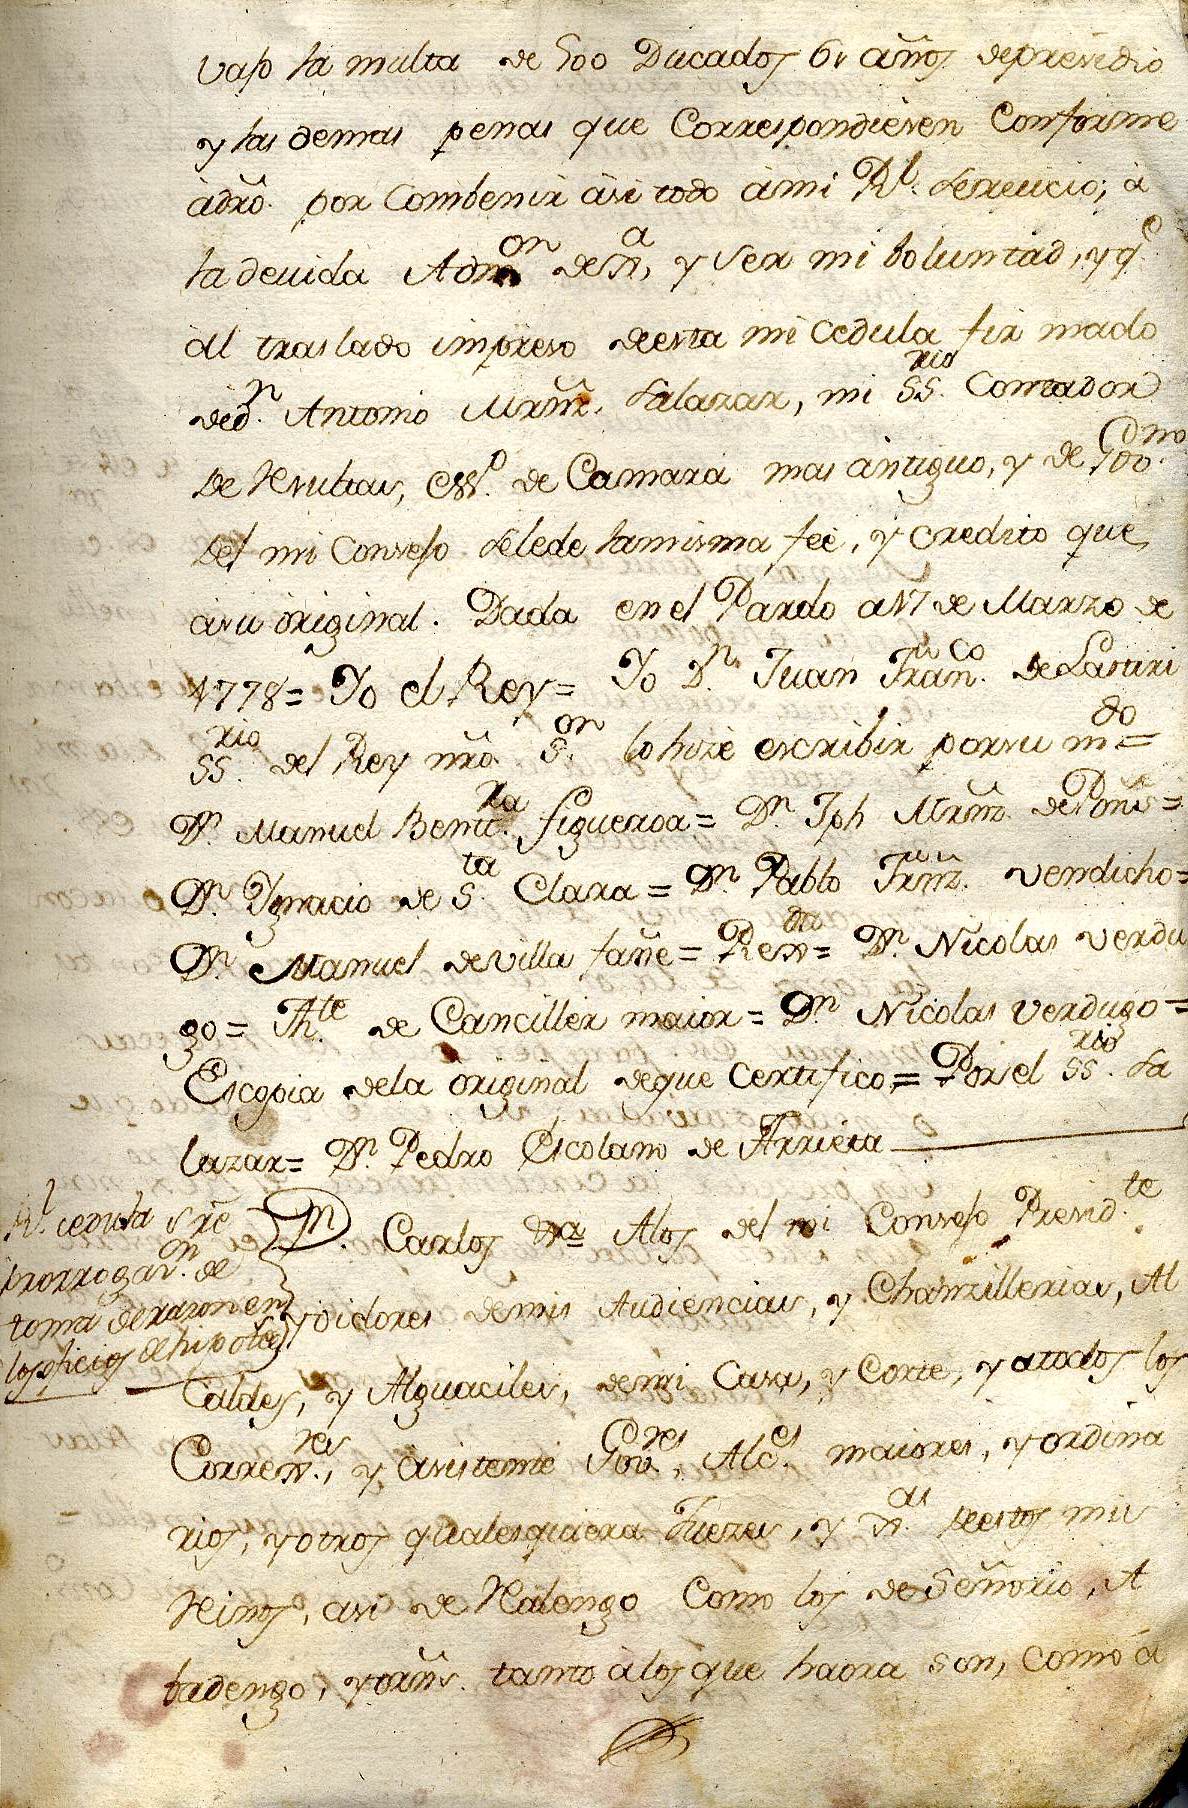 vajo la multa de 500 Ducados 6 años depresidio
y las demas penas que Correspondieren Conforme
àdro. por Combenir àsi todo àmi Rl. Serbicio; à
la devida Admon deJª, y Ser mi boluntad, yqe
àl traslado impreso deesta mi cedula firmado
deDn. Antonio Mrñz. Salazar, mi SSrio. Contador
de Resultas, essno. de Camara mas àntiguo, y de Govno.
del mi Consejo selede lamisma feè, y credito que
àsu òriginal. Dada en el Pardo a17 de Marzo de
1778= Yo el Rey= Yo Dn. Juan Franco. de Lastiri
SSrio. del Rey nrò. Sor. lo hizè escribir porsu mdo=
Dn. Manuel Bentura figueroa= Dn. Jph Mrñz. de Pons=
Dn. Ygnacio de Sta. Clara= Dn. Pablo Frrnz. Vendicho=
Dn. Manuel deVilla fañe= Regdo= Dn. Nicolas Verdu
go= Thte. de Canciller maior= Dn. Nicolas Verdugo=
Escopia dela òriginal deque Certifico,= Por el SSrio. Sa
lazar= Dn. Pedro Escolano de Arrieta
Rl. cedula sre
prorrogaon. de
toma derazon en
losoficios de hipotecs
Dn. Carlos Vª Alos del mi Consejo Presidte.
yoidores demis Audiencias, y Chanzillerias, Al
Caldes, y Alguaciles, demi Casa, y Corte, y atodos los
Corregres., y àsistente Govres., Alces. maiores, y ordina
rios, y otros qualesquiera Juezes, y Jas. deestos mis
Reinos, asi de Realengo Como los de Señorio, A
badengo, y òrñs. tanto àlos que haora son, Como à